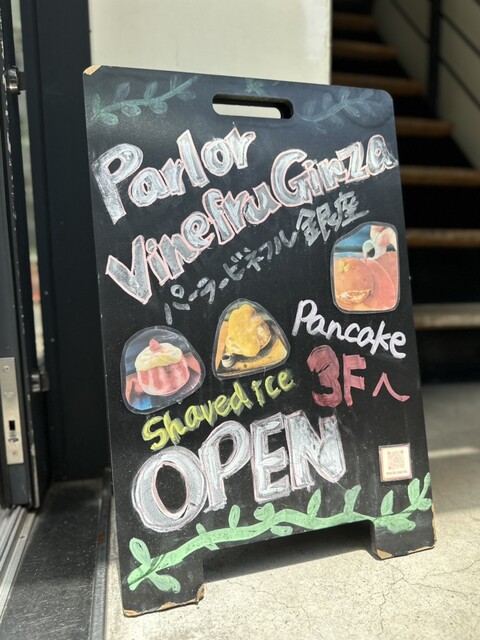 Parlor
Vinefru Ginza
パーラービネフル銀座
Pancake
Shaved ice
3Fへ
OPEN